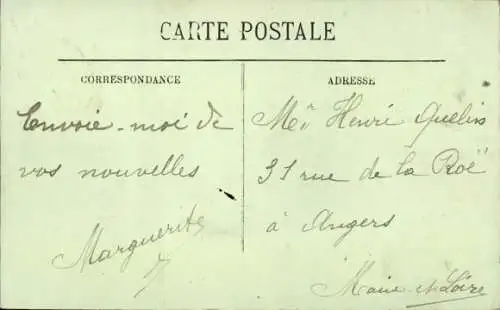 CARTE POSTALE
CORRESPONDANCE
Envoie-moi de
vos nouvelles
Marguerite
ADRESSE
Henri Quelin
31 rue de la Roë
à Angers
Maine et Loire